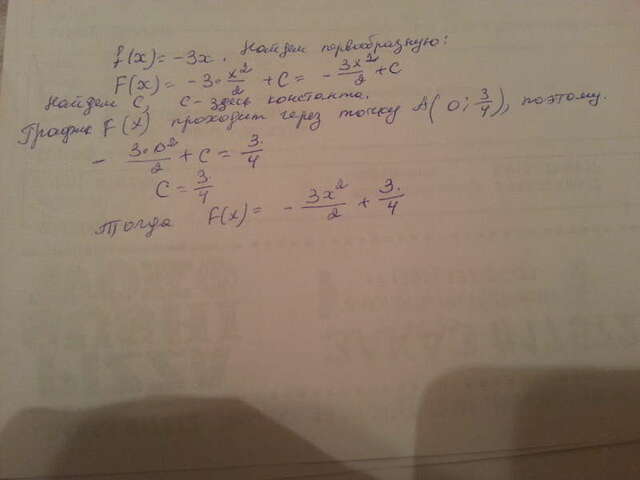 f(x) = -3x. Найдем первообразную:
F(x) = -3 · x²/2 + C = - 3x²/2 + C
Найдем C, C - здесь константа.
График F(x) проходит через точку A(0; 3/4), поэтому.
- 3·0²/2 + C = 3/4
C = 3/4
Тогда F(x) = - 3x²/2 + 3/4